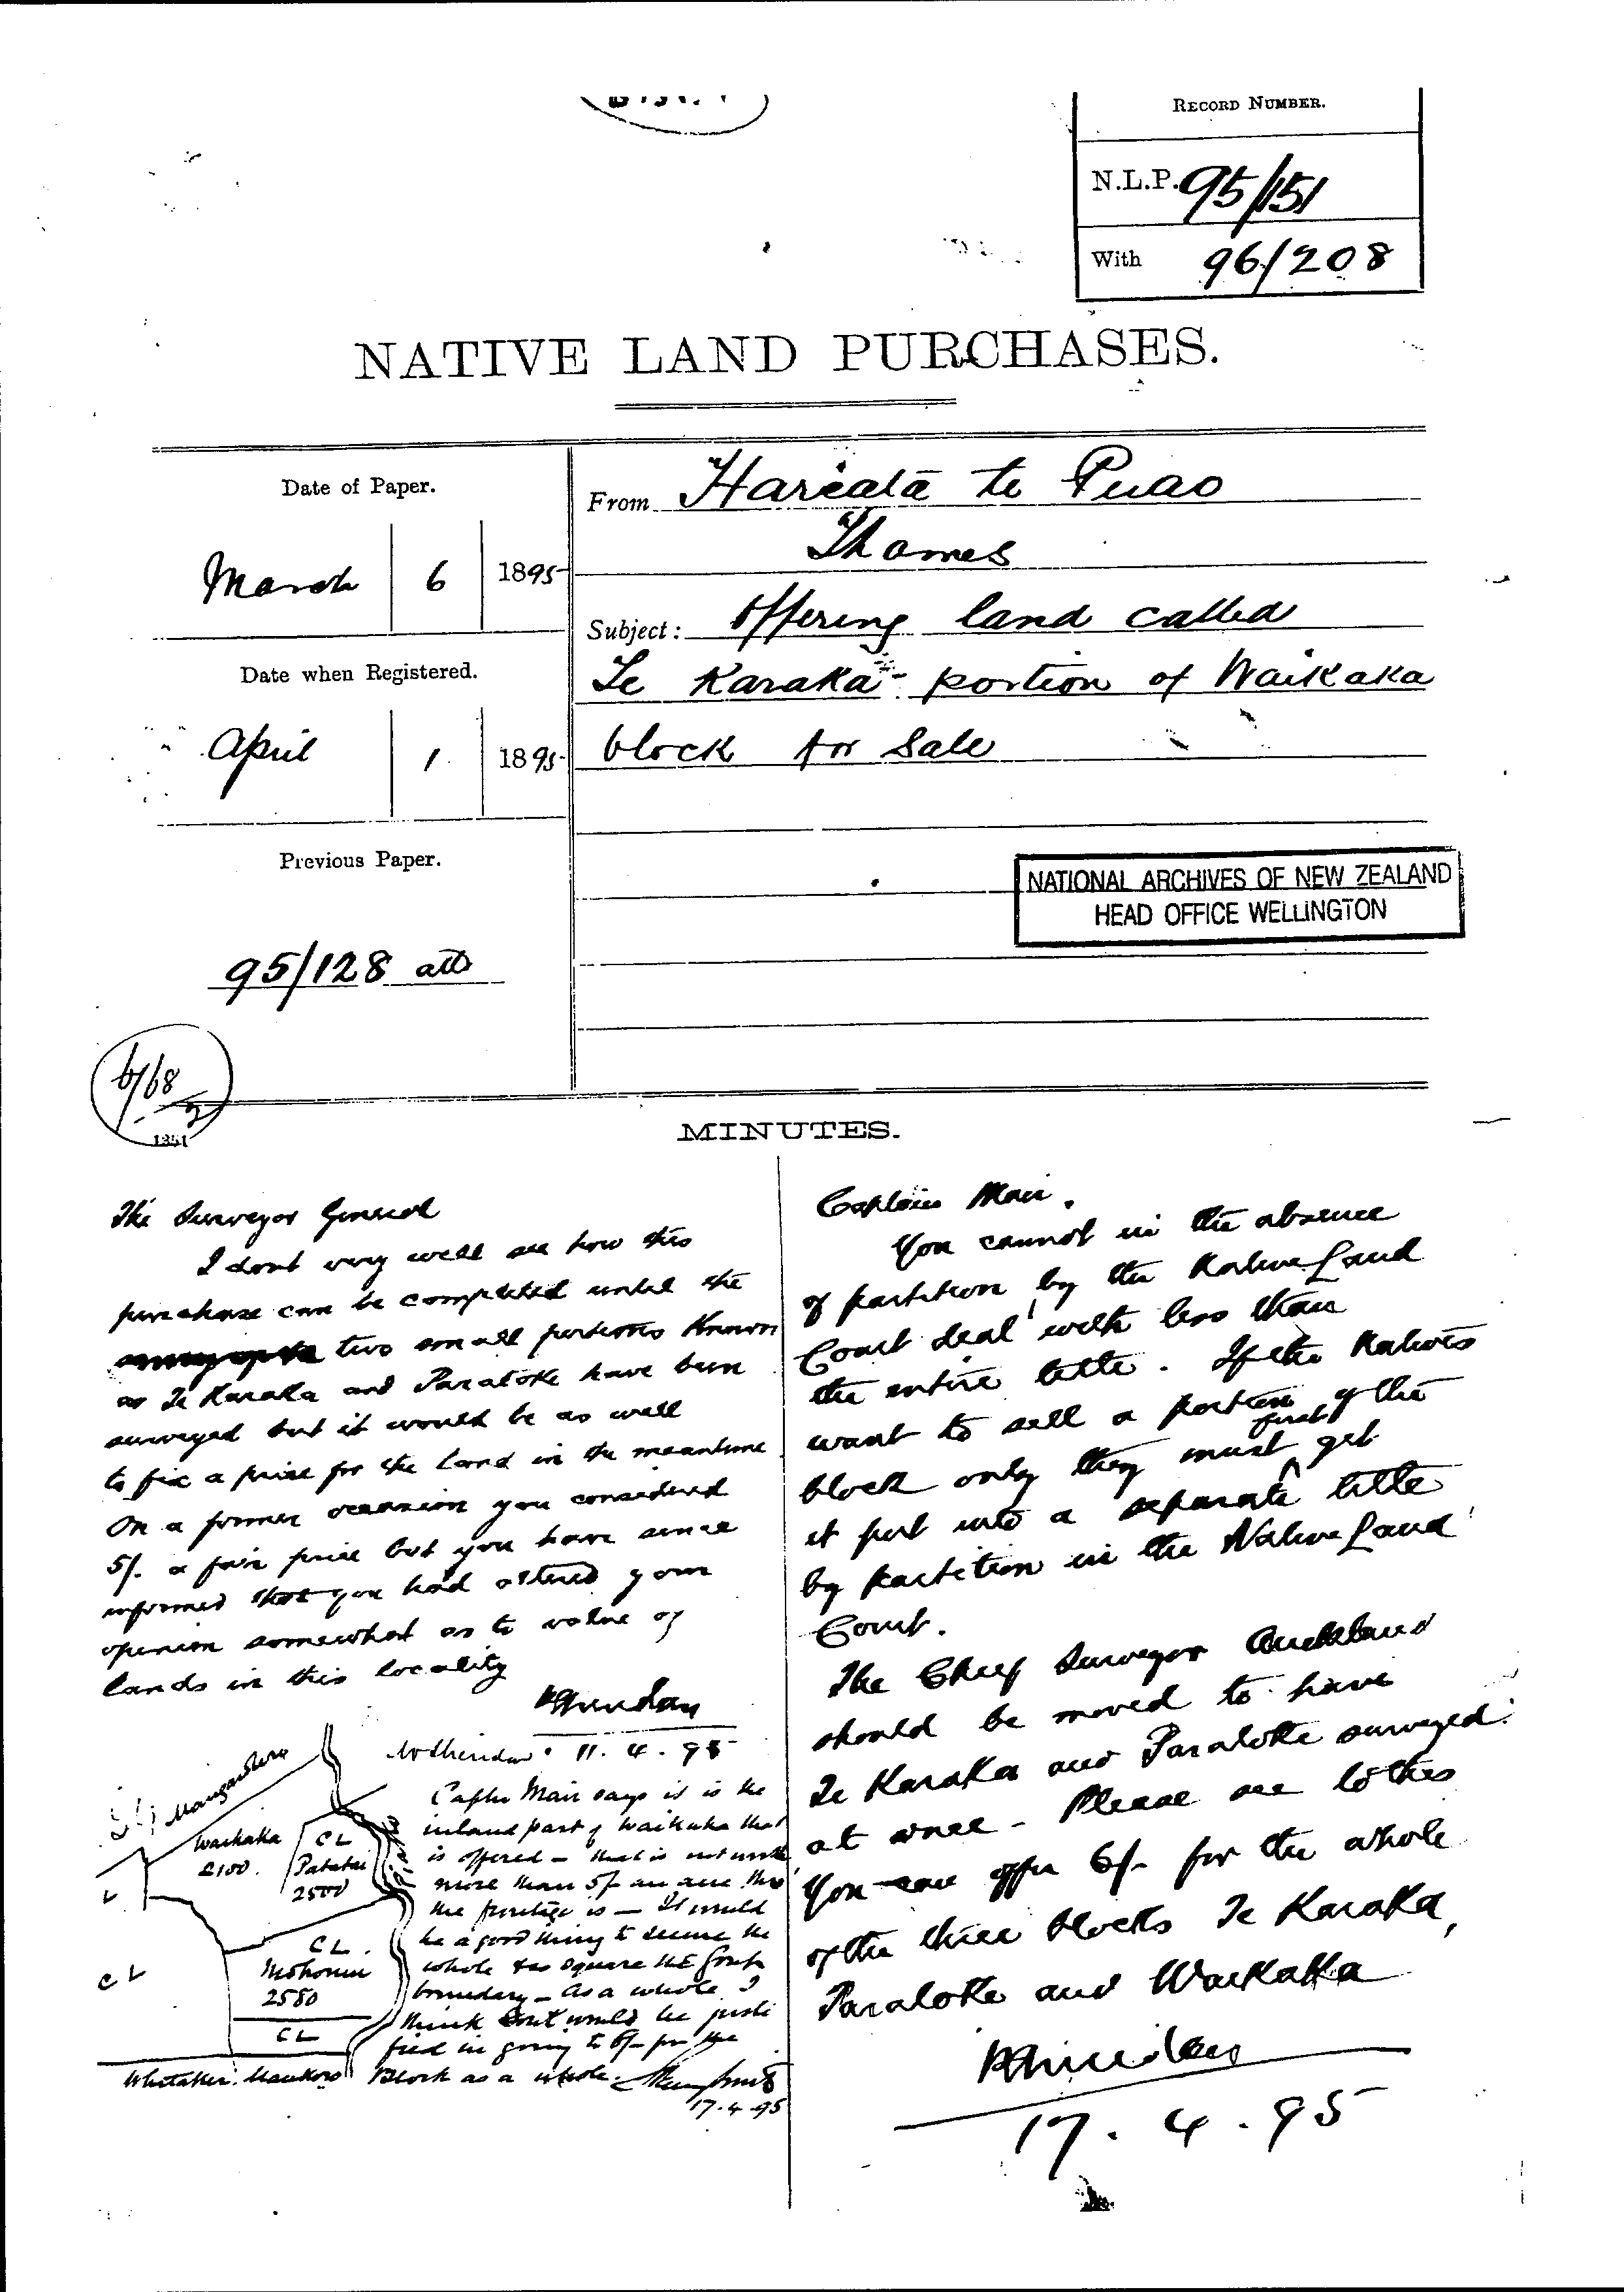 RECORD NUMBER.
N.L.P. 95/151
With 96/208
NATIVE LAND PURCHASES.
Date of Paper.
March 6 1895
Date when Registered.
April 1 1895
Previous Paper.
95/128 att
From Hariata te Puao
Thames
Subject: Offering land called
Te Karaka portion of Waikaka
block for Sale
NATIONAL ARCHIVES OF NEW ZEALAND
HEAD OFFICE WELLINGTON
1351
MINUTES.
The Surveyor General
I dont very well see how this
purchase can be completed until the
two small portions Known
as Te Karaka and Paratoke have been
surveyed but it would be as well
to fix a price for the land in the meantime
On a former occasion you considered
5/- a fair price but you have since
informed that you had altered your
opinion somewhat as to value of
lands in this locality
PSheridan
11.4.95
Mr Sheridan
Captn Mair says it is the
inland part of Waikaka that
is offered — that is not worth
more than 5/- an acre tho
the frontage is — It would
be a good thing to secure the
whole & so square the Govt
boundary — As a whole I
think Govt would be justi
fied in going to 6/- for the
Block as a whole.
17.4.95
Waikaka
2100
CL
Patatai
2500
CL
CL
Mohonui
2580
CL
Whitaker
Captain Mair.
You cannot in the absence
of partition by the Native Land
Court deal with less than
the entire title. If the Natives
want to sell a portion of the
block only they must first get
it put into a separate title
by partition in the Native Land
Court.
The Chief Surveyor Auckland
should be moved to have
Te Karaka and Paratoke surveyed
at once. Please see to this
You can offer 6/- for the whole
of the three blocks Te Karaka,
Paratoke and Waikaka
PSheridan
17.4.95